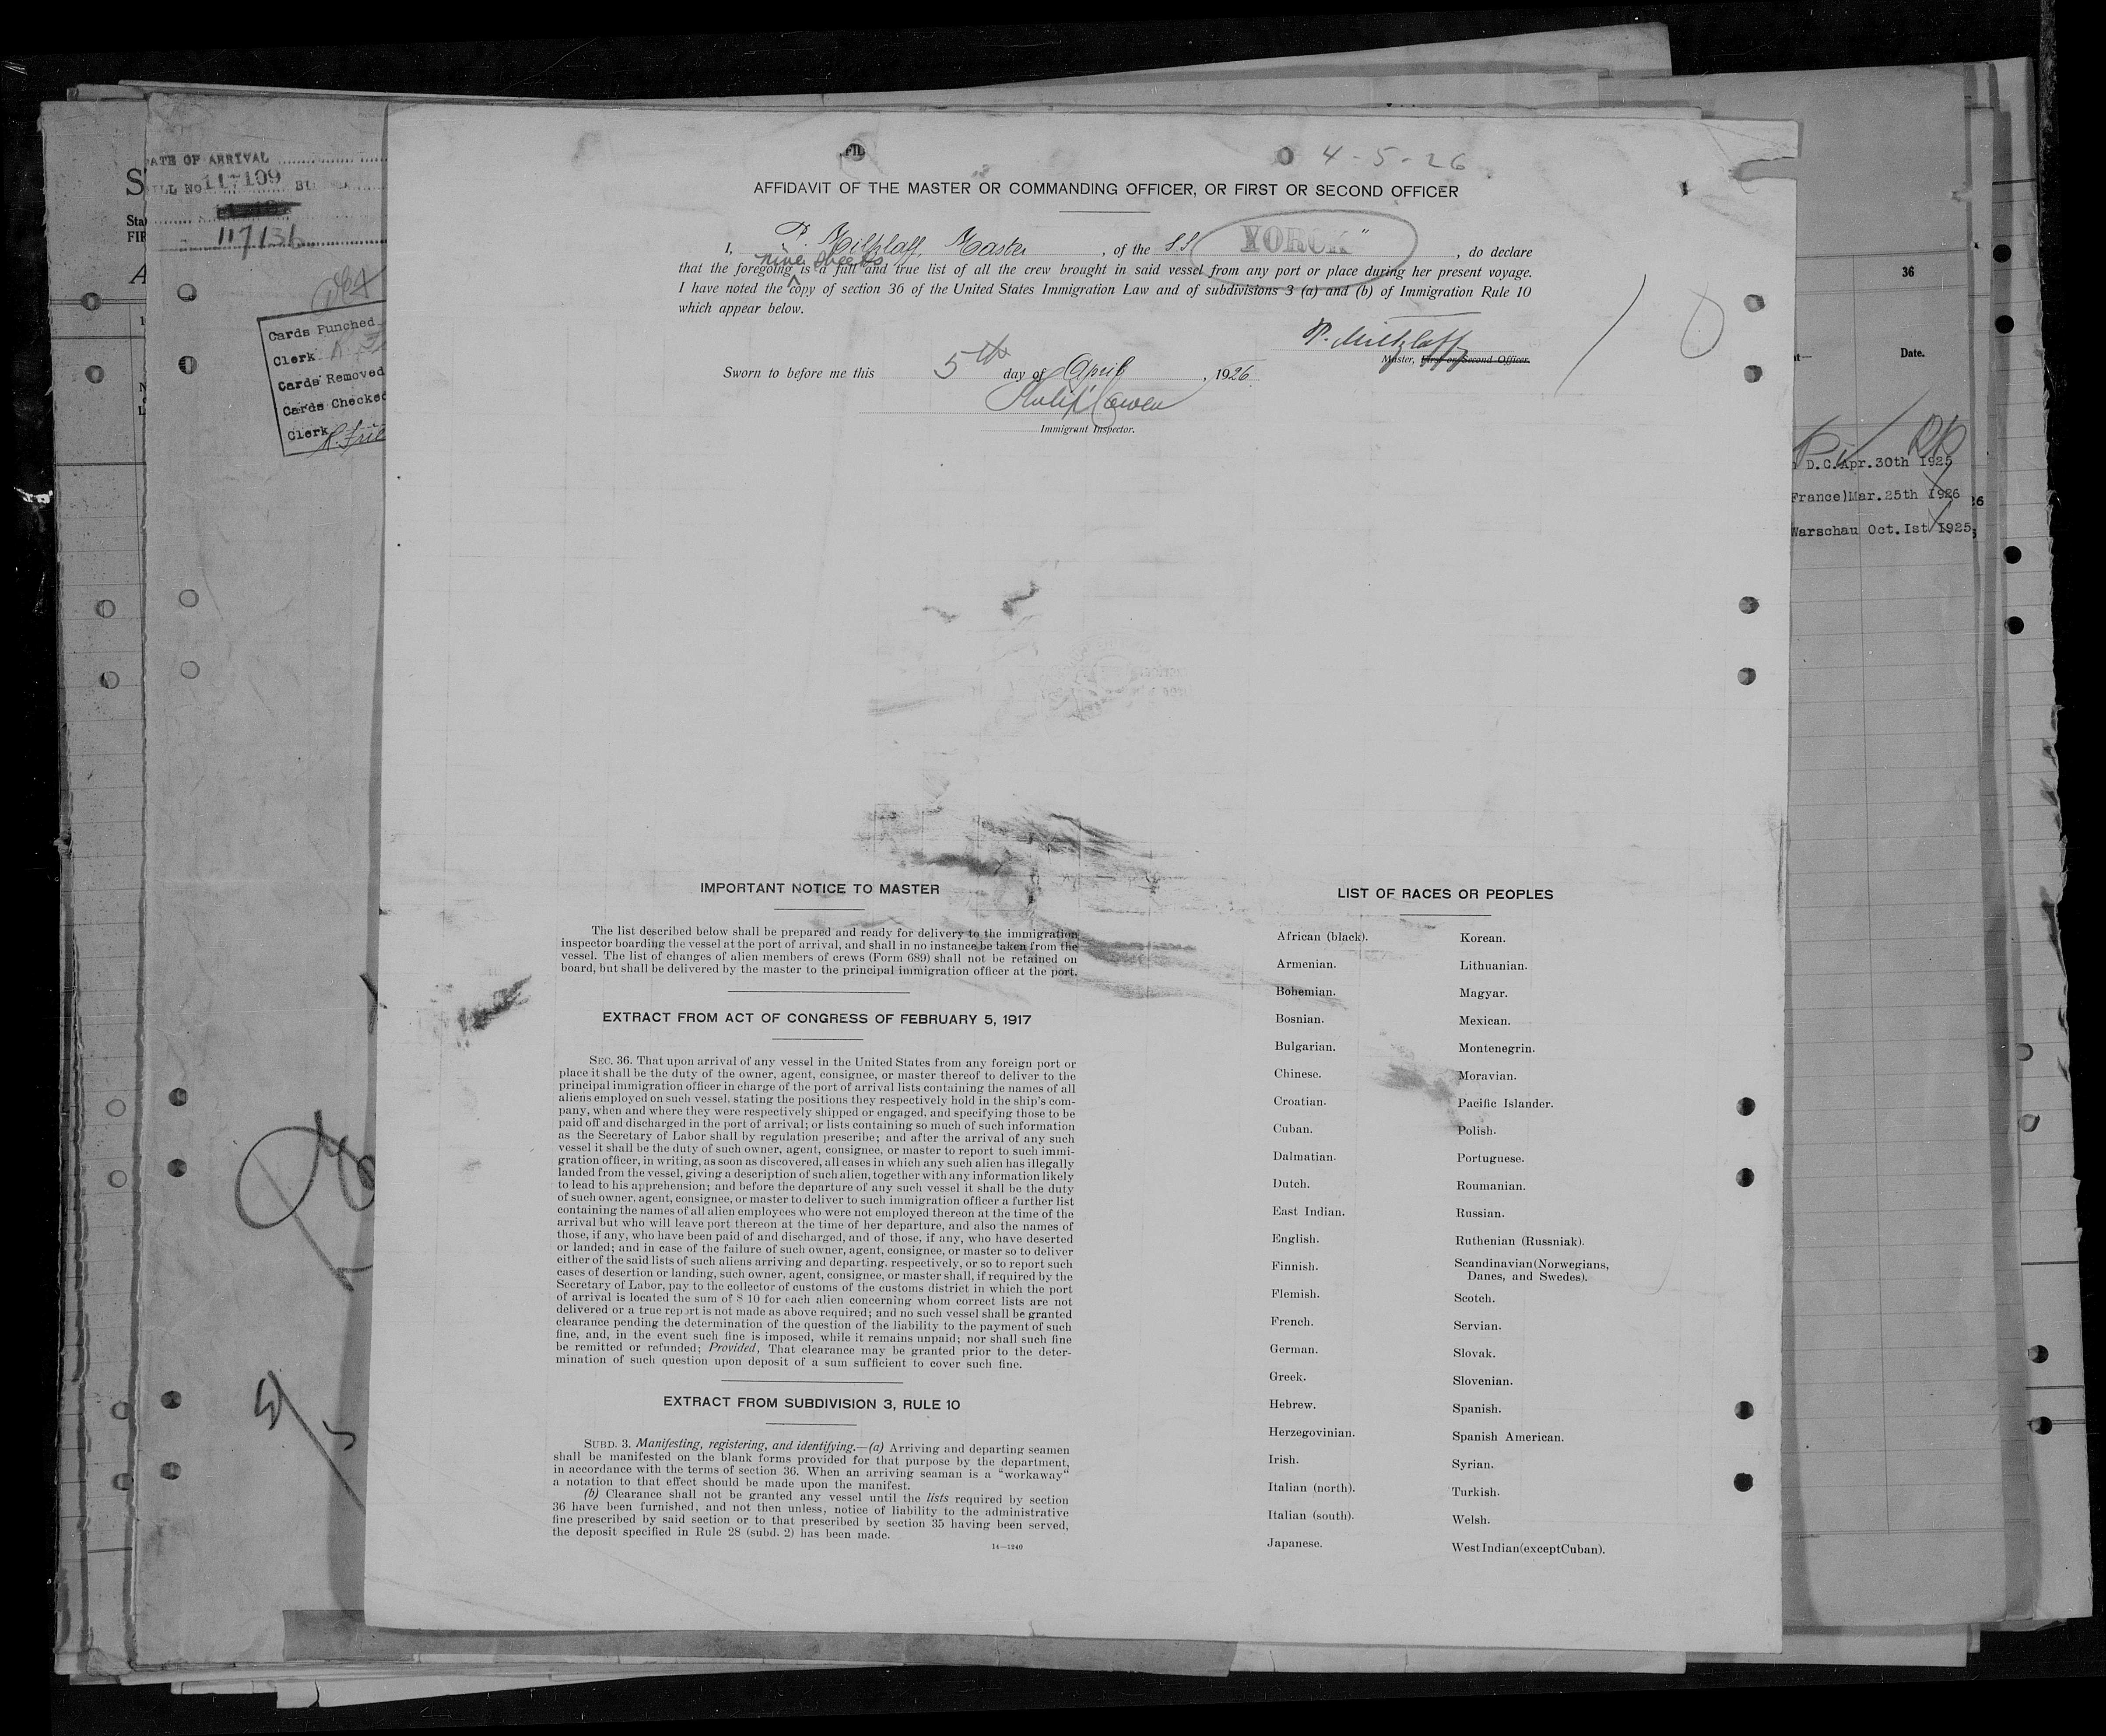 DATE OF ARRIVAL
117109
117136
Cards Punched
Clerk
Cards Removed
Cards Checked
Clerk
4-5-26
AFFIDAVIT OF THE MASTER OR COMMANDING OFFICER, OR FIRST OR SECOND OFFICER
I, P. Miltzlaff, Master, of the SS "YORCK", do declare
nine sheets
that the foregoing is a full and true list of all the crew brought in said vessel from any port or place during her present voyage.
I have noted the copy of section 36 of the United States Immigration Law and of subdivisions 3 (a) and (b) of Immigration Rule 10
which appear below.
P. Miltzlaff
Master, First or Second Officer.
Sworn to before me this 5th day of April, 1926.
Philip Cowen
Immigrant Inspector.
36
Date.
D.C. Apr. 30th 1925
France) Mar. 25th 1926
Warschau Oct. 1st 1925;
IMPORTANT NOTICE TO MASTER
The list described below shall be prepared and ready for delivery to the immigration
inspector boarding the vessel at the port of arrival, and shall in no instance be taken from the
vessel. The list of changes of alien members of crews (Form 689) shall not be retained on
board, but shall be delivered by the master to the principal immigration officer at the port.
EXTRACT FROM ACT OF CONGRESS OF FEBRUARY 5, 1917
SEC. 36. That upon arrival of any vessel in the United States from any foreign port or
place it shall be the duty of the owner, agent, consignee, or master thereof to deliver to the
principal immigration officer in charge of the port of arrival lists containing the names of all
aliens employed on such vessel, stating the positions they respectively hold in the ship's com-
pany, when and where they were respectively shipped or engaged, and specifying those to be
paid off and discharged in the port of arrival; or lists containing so much of such information
as the Secretary of Labor shall by regulation prescribe; and after the arrival of any such
vessel it shall be the duty of such owner, agent, consignee, or master to report to such immi-
gration officer, in writing, as soon as discovered, all cases in which any such alien has illegally
landed from the vessel, giving a description of such alien, together with any information likely
to lead to his apprehension; and before the departure of any such vessel it shall be the duty
of such owner, agent, consignee, or master to deliver to such immigration officer a further list
containing the names of all alien employees who were not employed thereon at the time of the
arrival but who will leave port thereon at the time of her departure, and also the names of
those, if any, who have been paid of and discharged, and of those, if any, who have deserted
or landed; and in case of the failure of such owner, agent, consignee, or master so to deliver
either of the said lists of such aliens arriving and departing, respectively, or so to report such
cases of desertion or landing, such owner, agent, consignee, or master shall, if required by the
Secretary of Labor, pay to the collector of customs of the customs district in which the port
of arrival is located the sum of $ 10 for each alien concerning whom correct lists are not
delivered or a true report is not made as above required; and no such vessel shall be granted
clearance pending the determination of the question of the liability to the payment of such
fine, and, in the event such fine is imposed, while it remains unpaid; nor shall such fine
be remitted or refunded; Provided, That clearance may be granted prior to the deter-
mination of such question upon deposit of a sum sufficient to cover such fine.
EXTRACT FROM SUBDIVISION 3, RULE 10
SUBD. 3. Manifesting, registering, and identifying.—(a) Arriving and departing seamen
shall be manifested on the blank forms provided for that purpose by the department,
in accordance with the terms of section 36. When an arriving seaman is a "workaway"
a notation to that effect should be made upon the manifest.
(b) Clearance shall not be granted any vessel until the lists required by section
36 have been furnished, and not then unless, notice of liability to the administrative
fine prescribed by said section or to that prescribed by section 35 having been served,
the deposit specified in Rule 28 (subd. 2) has been made.
14—1240
LIST OF RACES OR PEOPLES
African (black).
Armenian.
Bohemian.
Bosnian.
Bulgarian.
Chinese.
Croatian.
Cuban.
Dalmatian.
Dutch.
East Indian.
English.
Finnish.
Flemish.
French.
German.
Greek.
Hebrew.
Herzegovinian.
Irish.
Italian (north).
Italian (south).
Japanese.
Korean.
Lithuanian.
Magyar.
Mexican.
Montenegrin.
Moravian.
Pacific Islander.
Polish.
Portuguese.
Roumanian.
Russian.
Ruthenian (Russniak).
Scandinavian (Norwegians,
Danes, and Swedes).
Scotch.
Servian.
Slovak.
Slovenian.
Spanish.
Spanish American.
Syrian.
Turkish.
Welsh.
West Indian (except Cuban).